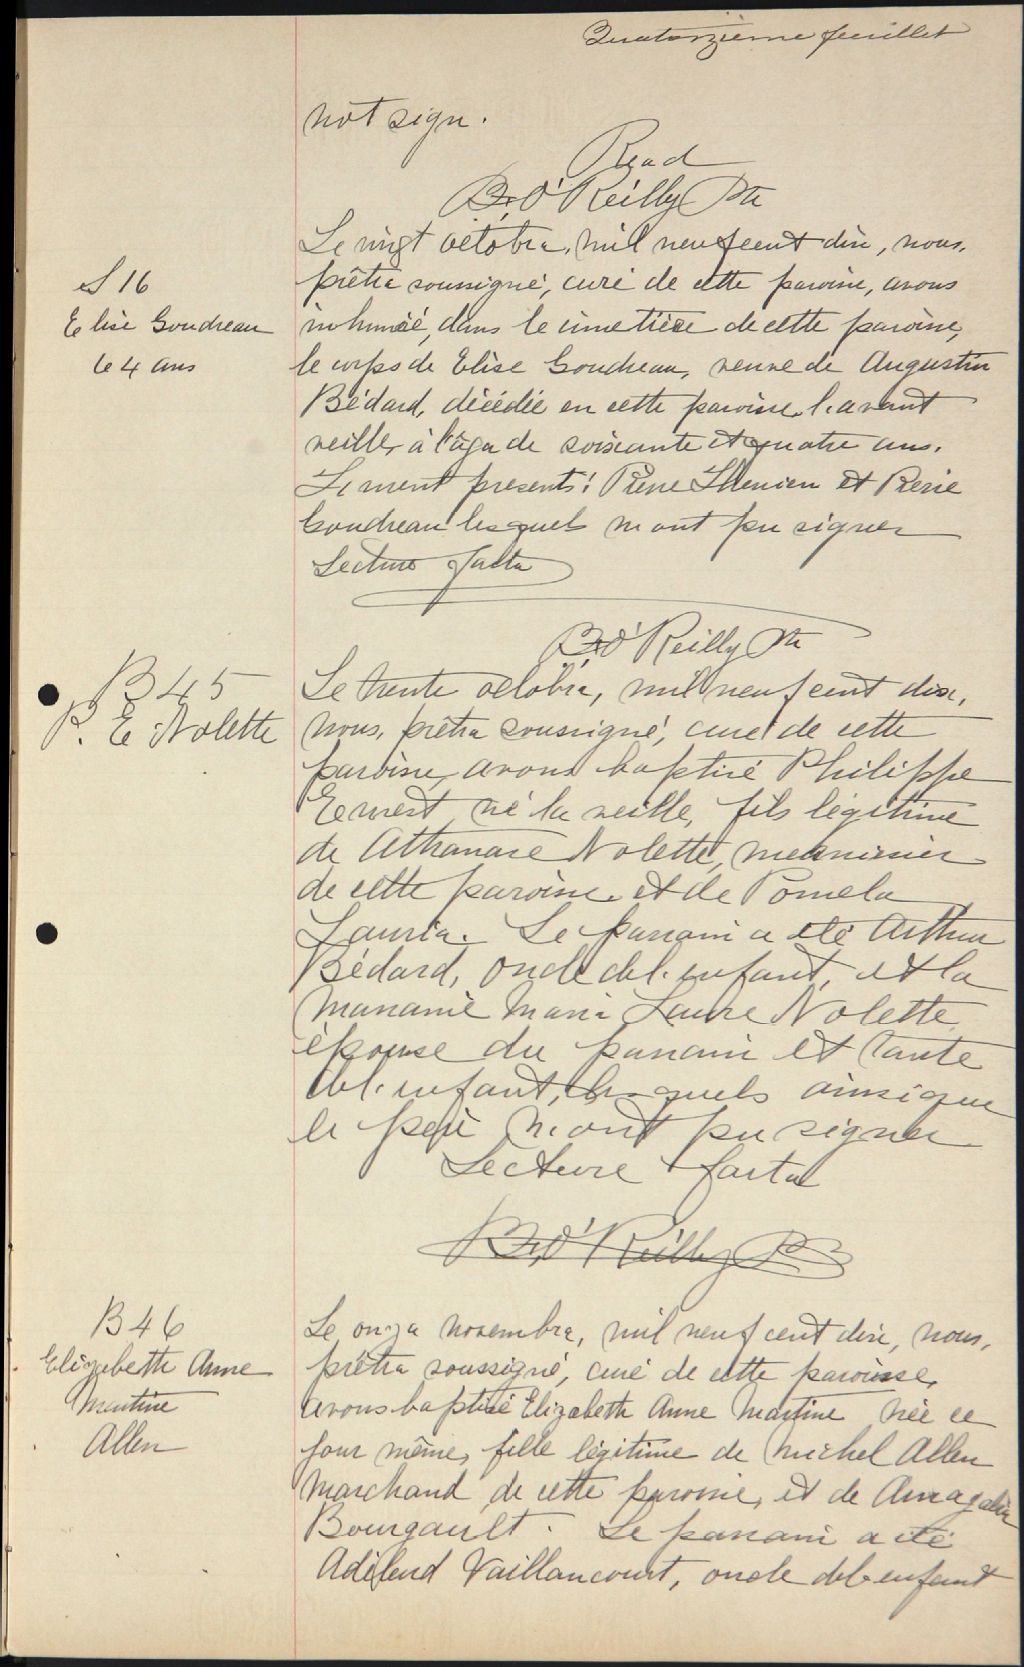 Quatorzième feuillet
not sign.
Read
Br. O'Reilly Ptr
Le vingt octobre, mil neuf cent dix, nous,
S 16
prêtre soussigné, curé de cette paroisse, avons
Elise Goudreau
inhumé, dans le cimetière de cette paroisse,
64 ans
le corps de Elise Goudreau, veuve de Augustin
Bédard, décédée en cette paroisse l'avant
veille, à l'âge de soixante et quatre ans.
Furent présents: Pierre et
Goudreau lesquels n'ont pu signer
Lecture faite
Br. O'Reilly Ptr
B 45
Le trente octobre, mil neuf cent dix,
P. E. Nolette
nous, prêtre soussigné, curé de cette
paroisse, avons baptisé Philippe
Ernest, né la veille, fils légitime
de Athanase Nolette, menuisier
de cette paroisse et de Pomela
Le parrain a été Arthur
Bédard, oncle de l'enfant, et la
marraine Marie Laure Nolette
épouse du parrain et tante
de l'enfant, lesquels ainsi que
le père n'ont pu signer
Lecture faite
Br. O'Reilly Ptr
B 46
Le onze novembre, mil neuf cent dix, nous,
Elizabeth Anne
prêtre soussigné, curé de cette paroisse,
Martine
avons baptisé Elizabeth Anne Martine née ce
Allen
jour même, fille légitime de Michel Allen
marchand de cette paroisse, et de
Bourgault. Le parrain a été
Adélard Vaillancourt, oncle de l'enfant